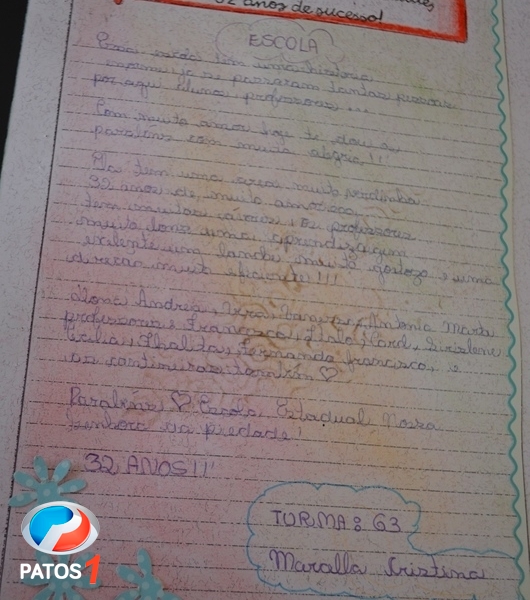 32 anos de sucesso!
ESCOLA
Essa escola tem uma história
enorme ja se passaram tantas pessoas
por aqui alunos professores...
Com muito amor hoje te dou os
parabens com muita alegria!!!
Ela tem uma área muito
32 anos de muito amor
tem muitas coisas professores
muito bons uma aprendizagem
exelente um lanche muito gostozo e uma
direcao muito eficiente!!!
Andréa, Antonia Marta
professores: Francisco, Italo, Girislene
Thalita, Fernando francisco, e
as tambén ♡
Parabéns ♡ Escola Estadual Nossa
senhora da piedade!
32 ANOS!!
TURMA: 63
Maralla Cristina
PATOS 1